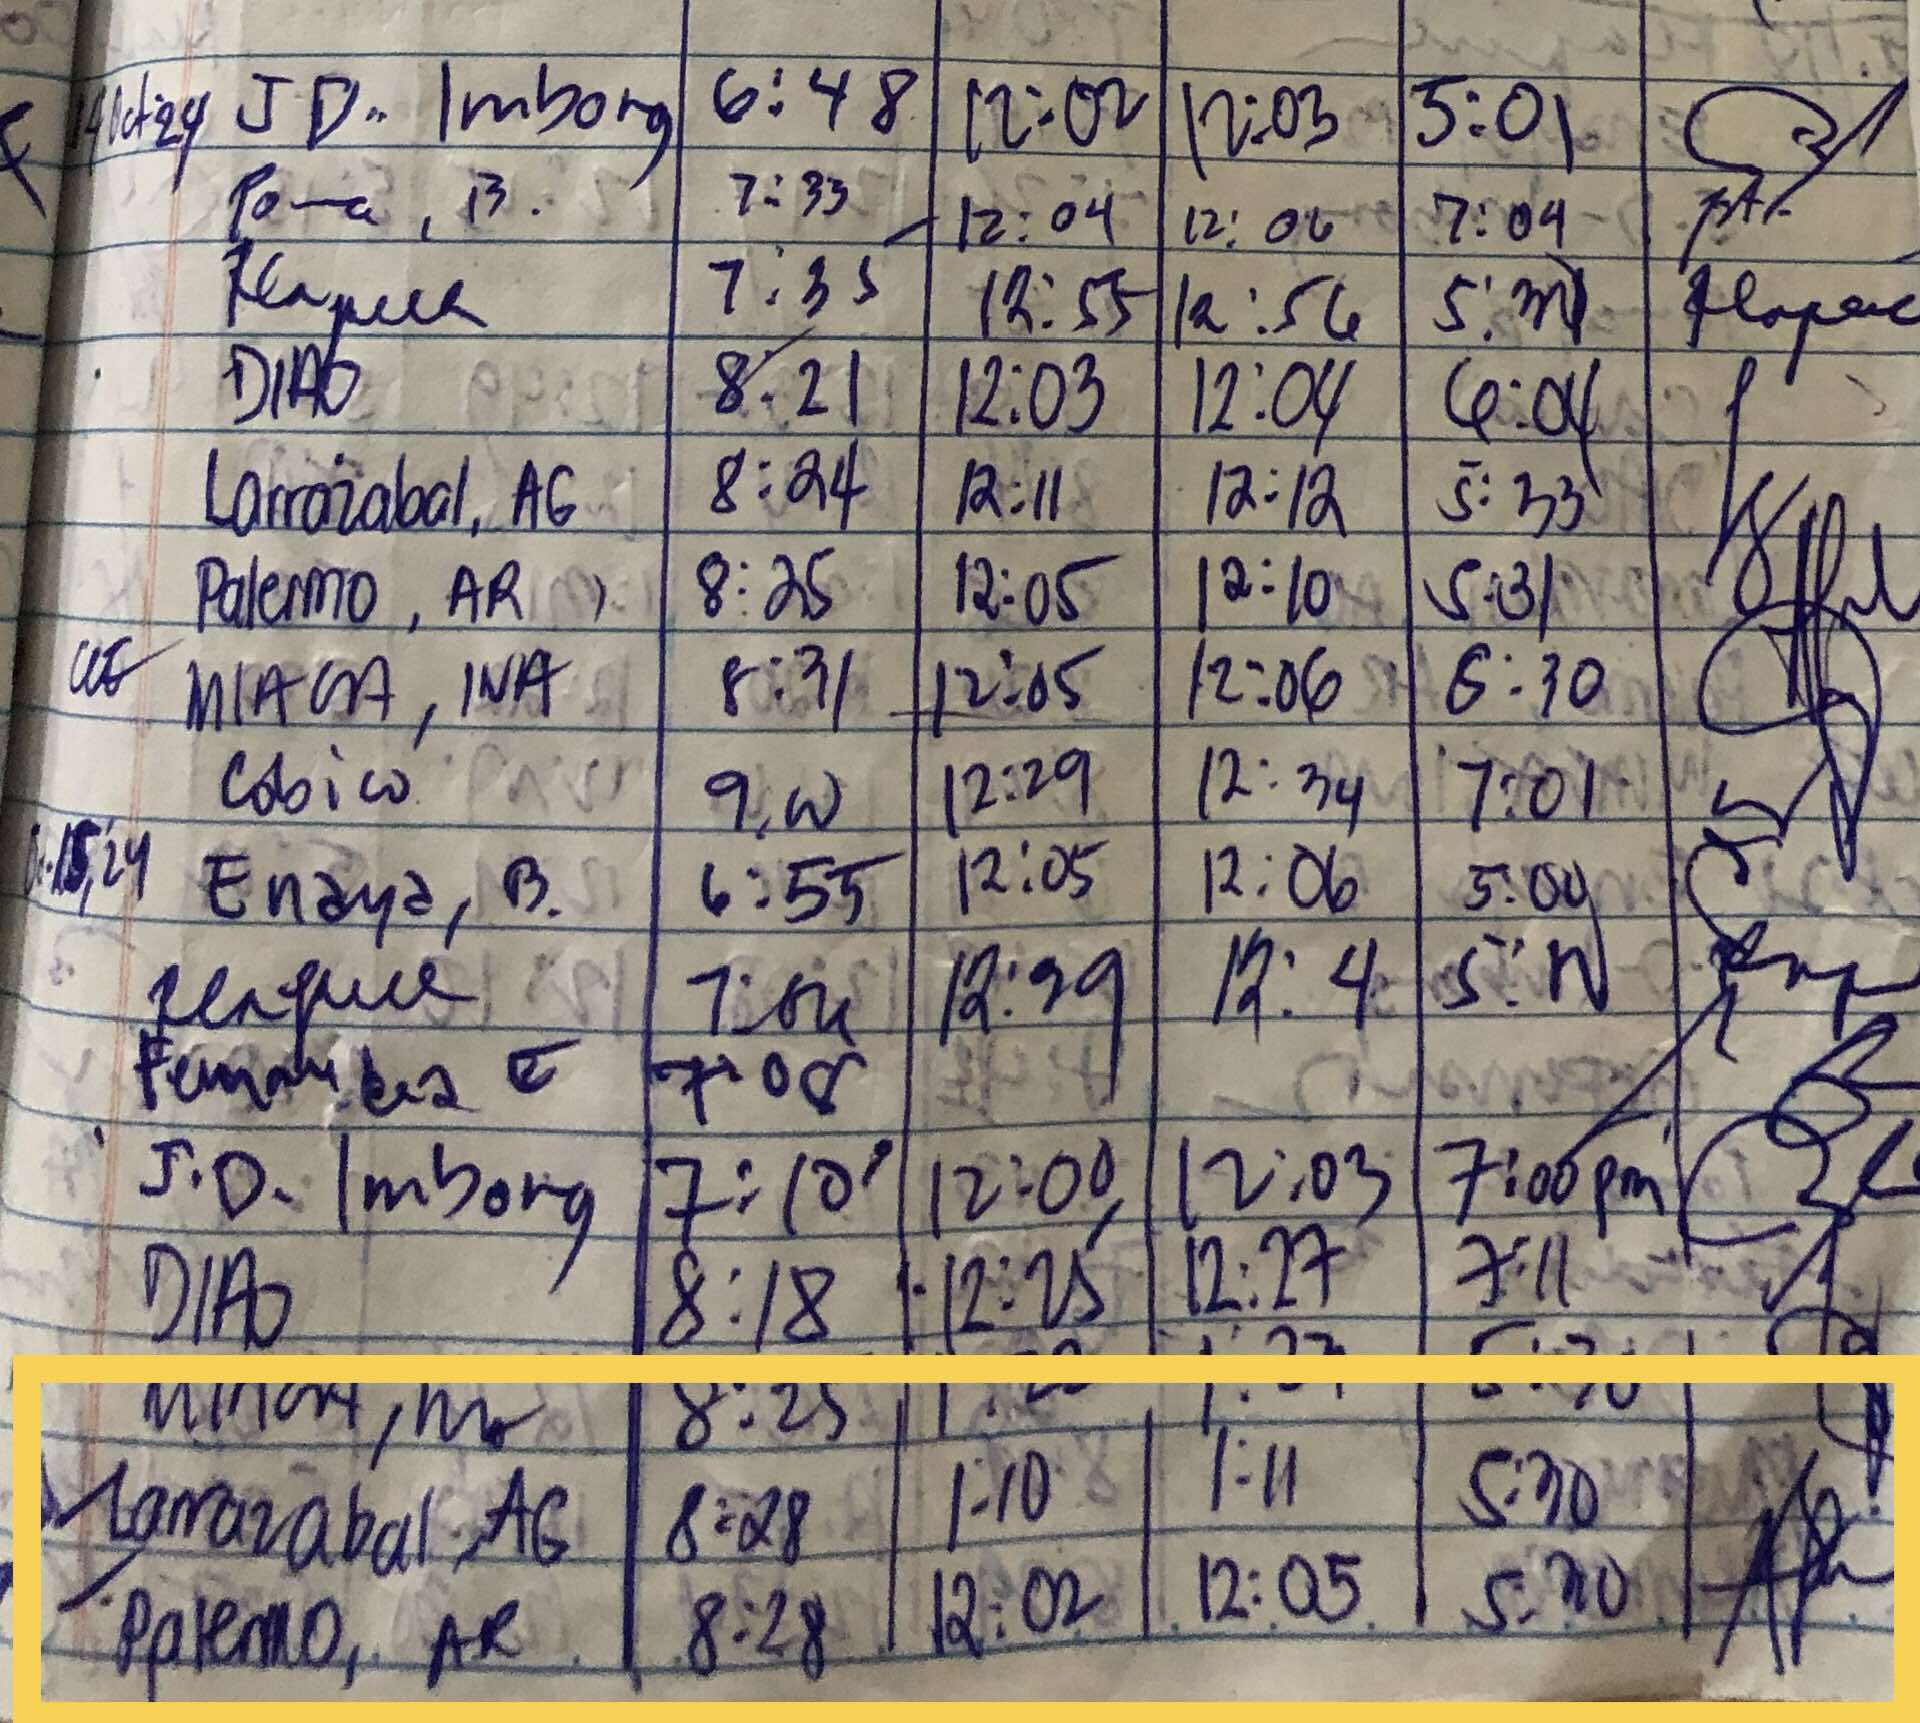 14 Oct 24 J.D. Imbong 6:48 12:02 12:03 5:01
B. 7:33 12:04 12:06 7:04
7:35 12:55 12:56
DIAO 8:21 12:03 12:04 6:04
Larrazabal, AG 8:24 12:11 12:12 5:33
Palermo, AR 8:25 12:05 12:10 5:31
MIAGA, INA 8:31 12:05 12:06 6:30
Cobico 9:00 12:29 12:34 7:01
15, 24 Enaya, B. 6:55 12:05 12:06 5:00
12:39 12:4
7:08
J.D. Imbong 7:10 12:00 12:03 7:00 pm
DIAO 8:18 12:25 12:27 7:11
8:25 5:30
Larrazabal, AG 8:28 1:10 1:11 5:30
Palermo, AR 8:28 12:02 12:05 5:30